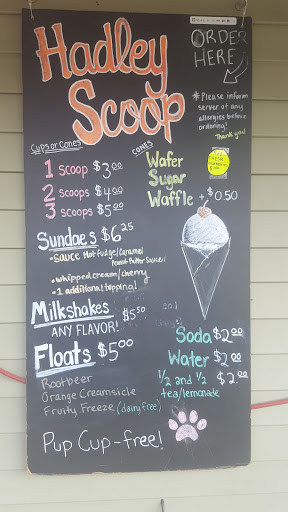 Hadley
Scoop
ORDER
HERE
* Please inform
server of any
allergies before
ordering!
Thank you!
Cups or Cones
1 SCOOP $3.00
2 SCOOPS $4.00
3 SCOOPS $5.00
CONES
Wafer
Sugar
Waffle + $0.50
Sundaes $6.25
• SAUCE Hot fudge/Caramel
Peanut Butter Sauce!
• whipped cream/cherry
• 1 additional topping!
Milkshakes $5.50
ANY FLAVOR!
Floats $5.00
Rootbeer
Orange Creamsicle
Fruity Freeze (dairy free)
Soda $2.00
Water $2.00
1/2 and 1/2 $2.00
tea/lemonade
Pup Cup - free!